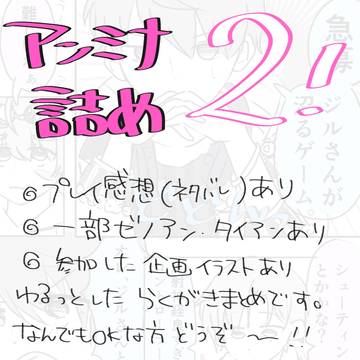 アンミナ
詰め 2!
◎プレイ感想(ネタバレ)あり
◎一部ゼノアン.タイアンあり
◎参加した企画イラストあり
ゆるっとした らくがきまとめです。
なんでもOKな方 どうぞ〜!!
急募
ジルさんが
沼るゲーム
シューティン
とかかな?